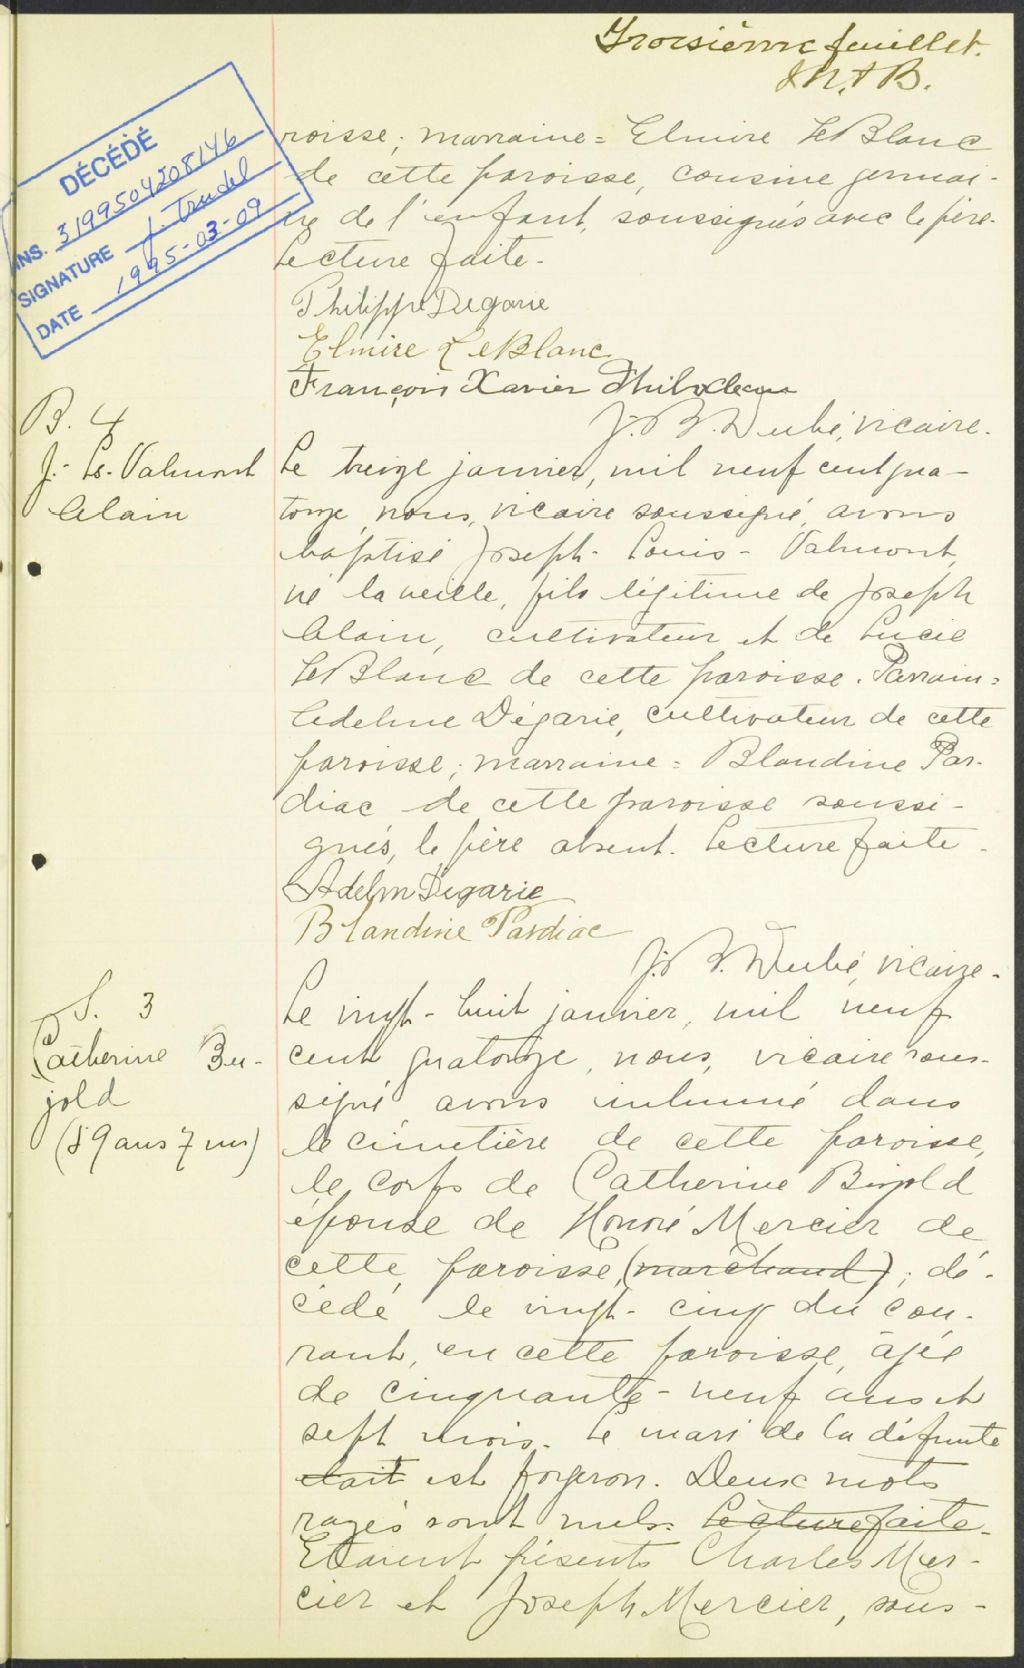 Troisième feuillet.
DÉCÉDÉ
INS. 3199504208146
SIGNATURE J. Trudel
DATE 1995-03-09
roisse; marraine = Elmire LeBlanc
de cette paroisse, cousine germai-
ne de l'enfant, soussignés avec le père.
Lecture faite.
Philippe Degarie
Elmire LeBlanc
François Xavier Thibodeau
J. B. Dubé, vicaire.
B. 4
J.- Ls. Valmont
Alain
Le treize janvier, mil neuf cent qua-
torze, nous, vicaire soussigné, avons
baptisé Joseph - Louis - Valmont,
né la veille, fils légitime de Joseph
Alain, cultivateur et de Lucie
LeBlanc de cette paroisse. Parrain =
Adelme Dégarie, cultivateur de cette
paroisse; marraine = Blandine Par-
diac de cette paroisse soussi-
gnés, le père absent. Lecture faite.
Adelm Degarie
Blandine Pardiac
J. B. Dubé, vicaire.
S. 3
Catherine Bu-
jold
(59 ans 7 ms)
Le vingt-huit janvier, mil neuf
cent quatorze, nous, vicaire sous-
signé avons inhumé dans
le cimetière de cette paroisse,
le corps de Catherine Bujold
épouse de Honoré Mercier de
cette paroisse, (marchand); dé-
cédé le vingt-cinq du cou-
rant, en cette paroisse, âgée
de cinquante-neuf ans et
sept mois. Le mari de la défunte
était est forgeron. Deux mots
rayés sont nuls. Lecture faite.
Etaient présents Charles Mer-
cier et Joseph Mercier, sous-